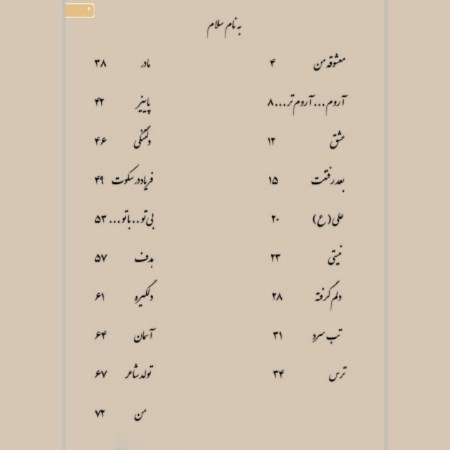 به نام سلام
معشوقه من ۴
آروم... آروم تر... ۸
عشق ۱۲
بعد رفتنت ۱۵
علی (ع) ۲۰
نیستی ۲۳
دلم گرفته ۲۸
تب سرد ۳۱
ترس ۳۴
مادر ۳۸
پاییز ۴۲
دلتنگی ۴۶
فریاد در سکوت ۴۹
بی تو... با تو... ۵۳
هدف ۵۷
دلگیره ۶۱
آسمان ۶۴
تولد شاعر ۶۷
من ۷۲